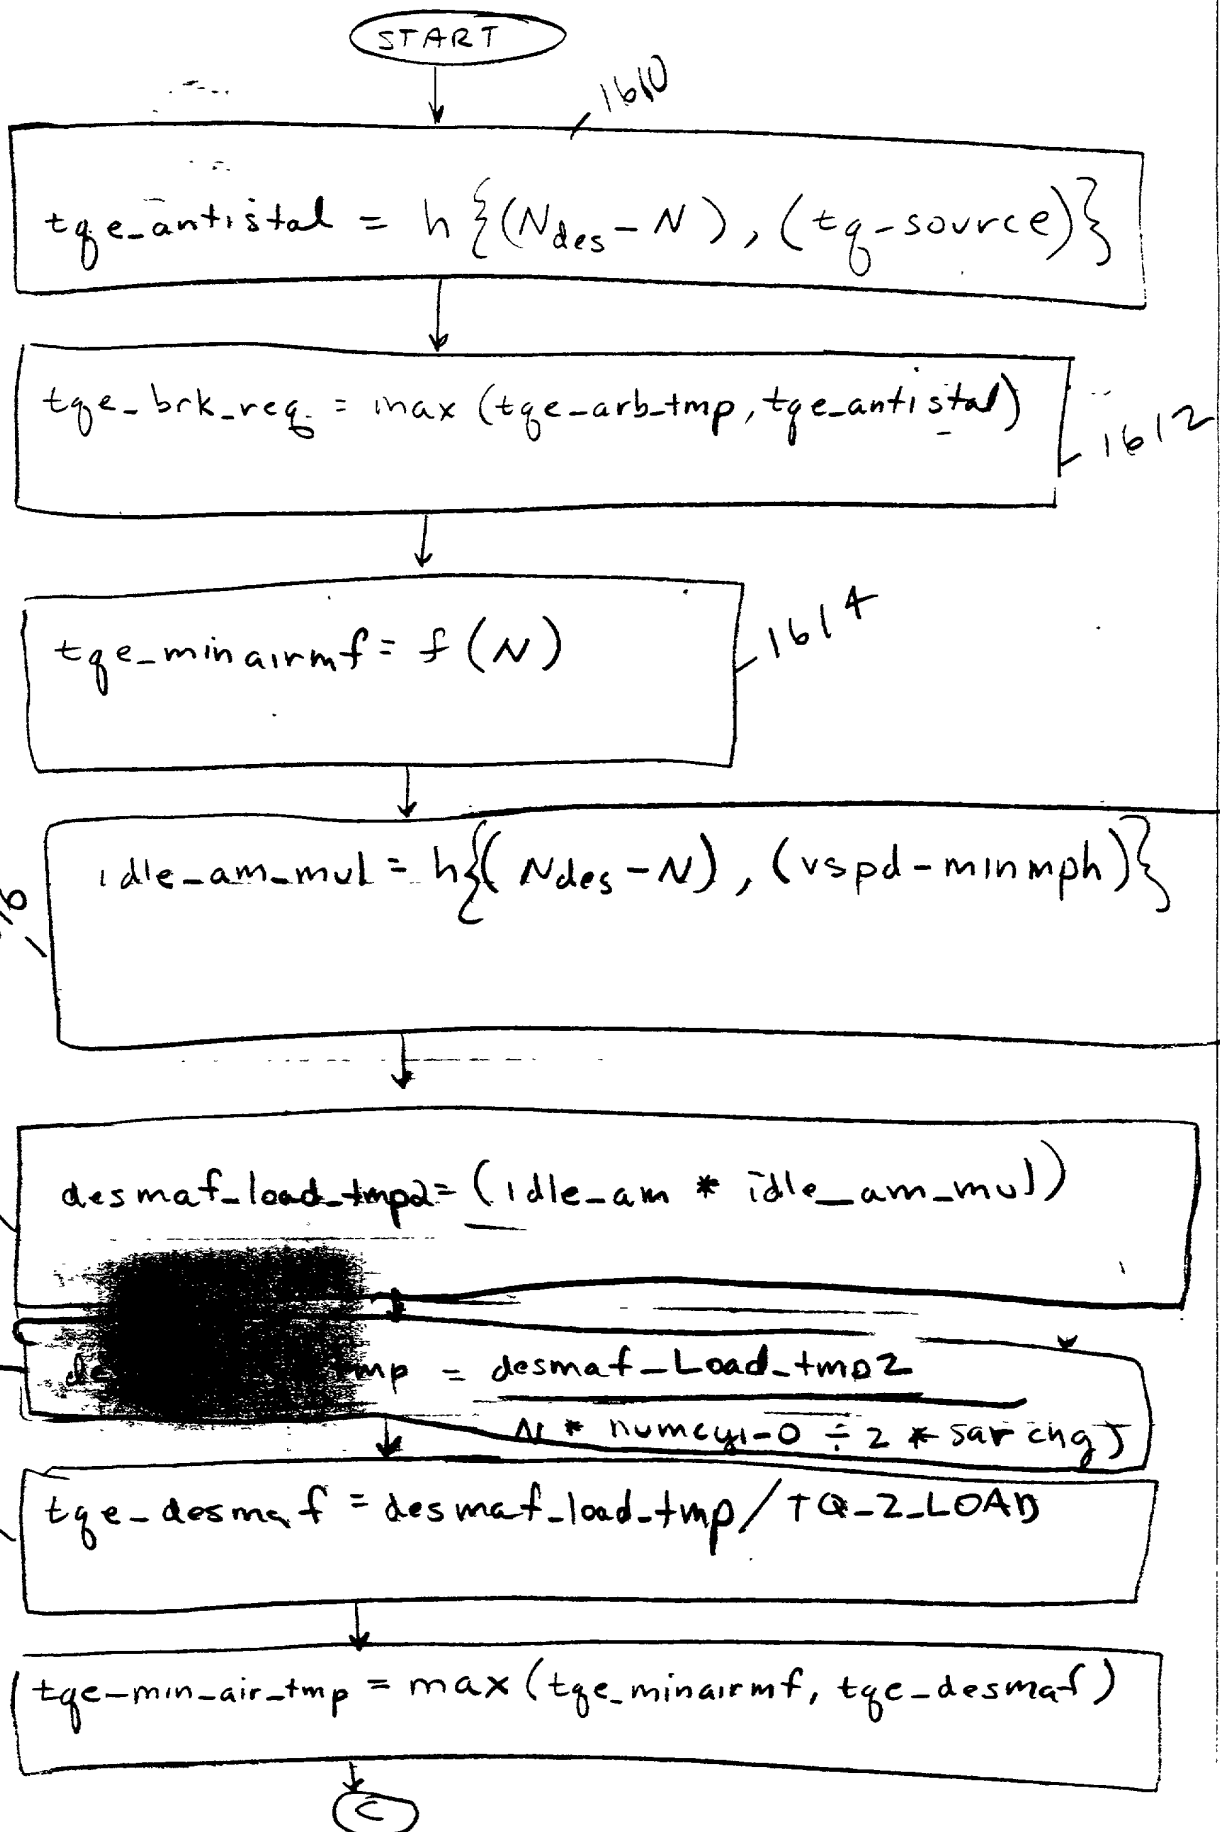 START
1610
tqe_antistal = h{(Ndes - N), (tq-source)}
tqe_brk_req = max (tqe_arb_tmp, tqe_antistal)
1612
tqe_minairmf = f(N)
1614
idle_am_mul = h{(Ndes - N), (vspd-minmph)}
desmaf_load_tmp2 = (idle_am * idle_am_mul)
mp = desmaf_Load_tmp2
N * numcyl-0 ÷ 2 * sarchg)
tqe_desmaf = desmaf_load_tmp / TQ_2_LOAD
tqe-min_air_tmp = max (tqe_minairmf, tqe_desmaf)
C